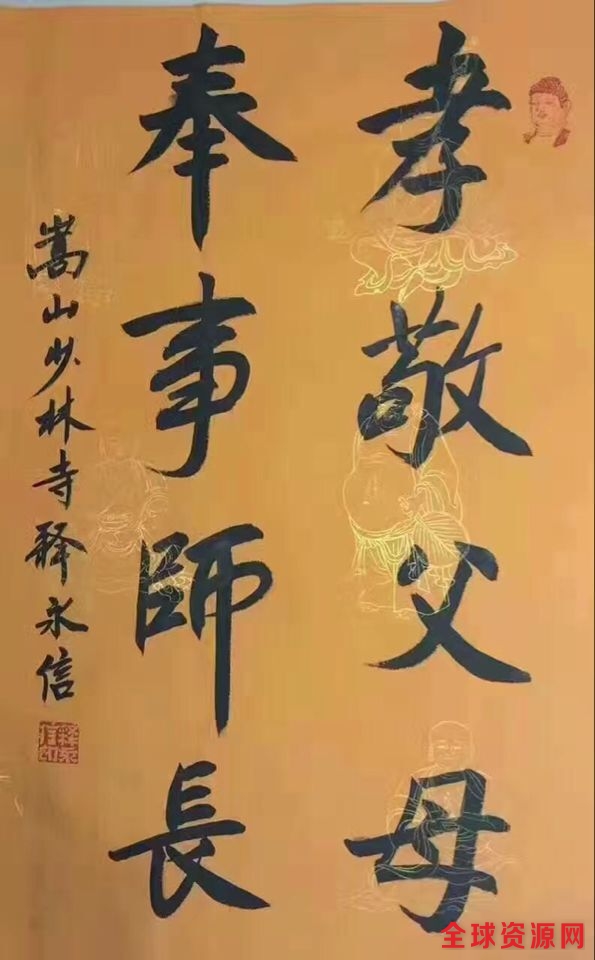 孝敬父母
奉事師長
嵩山少林寺釋永信
釋永信印
全球资源网